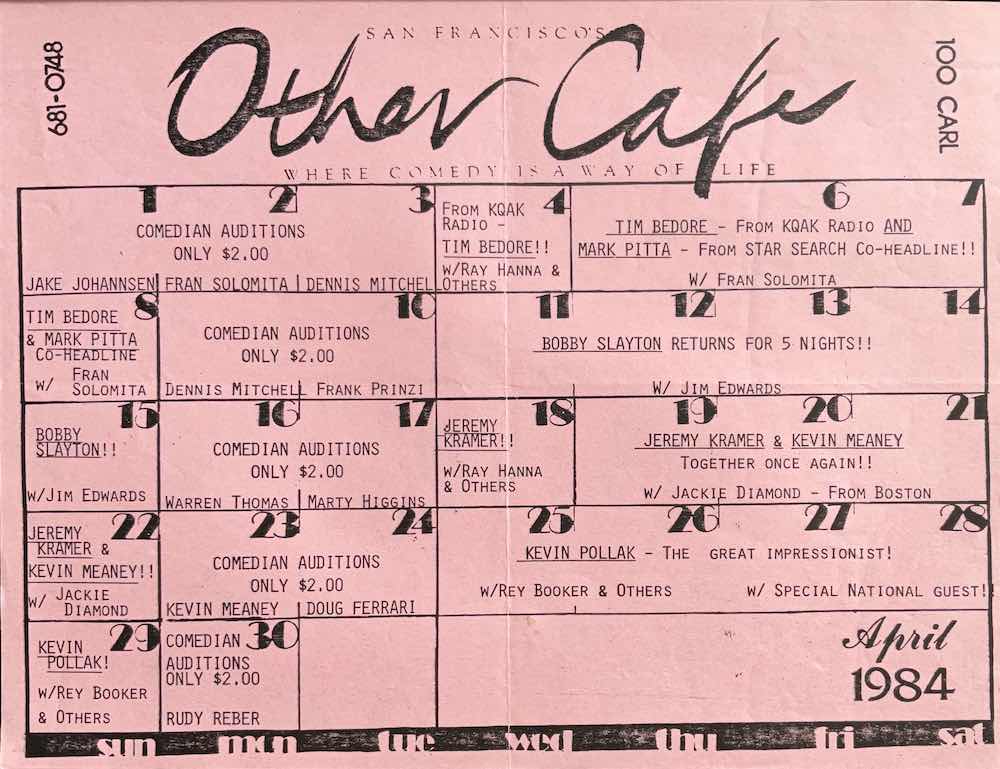 SAN FRANCISCO'S
681-0748
Other Cafe
100 CARL
WHERE COMEDY IS A WAY OF LIFE
1 2 3
COMEDIAN AUDITIONS
ONLY $2.00
JAKE JOHANNSEN FRAN SOLOMITA DENNIS MITCHEL
4
FROM KQAK
RADIO -
TIM BEDORE!!
W/RAY HANNA &
OTHERS
6 7
TIM BEDORE - FROM KQAK RADIO AND
MARK PITTA - FROM STAR SEARCH CO-HEADLINE!!
W/ FRAN SOLOMITA
8
TIM BEDORE
& MARK PITTA
CO-HEADLINE
W/ FRAN
SOLOMITA
10
COMEDIAN AUDITIONS
ONLY $2.00
DENNIS MITCHELL FRANK PRINZI
11 12 13 14
BOBBY SLAYTON RETURNS FOR 5 NIGHTS!!
W/ JIM EDWARDS
15
BOBBY
SLAYTON!!
W/JIM EDWARDS
16 17
COMEDIAN AUDITIONS
ONLY $2.00
WARREN THOMAS MARTY HIGGINS
18
JEREMY
KRAMER!!
W/RAY HANNA
& OTHERS
19 20 21
JEREMY KRAMER & KEVIN MEANEY
TOGETHER ONCE AGAIN!!
W/ JACKIE DIAMOND - FROM BOSTON
22
JEREMY
KRAMER &
KEVIN MEANEY!!
W/ JACKIE
DIAMOND
23 24
COMEDIAN AUDITIONS
ONLY $2.00
KEVIN MEANEY DOUG FERRARI
25 26 27 28
KEVIN POLLAK - THE GREAT IMPRESSIONIST!
W/REY BOOKER & OTHERS W/ SPECIAL NATIONAL GUEST!!
29
KEVIN
POLLAK!
W/REY BOOKER
& OTHERS
30
COMEDIAN
AUDITIONS
ONLY $2.00
RUDY REBER
April
1984
sun mon tue wed thu fri sat